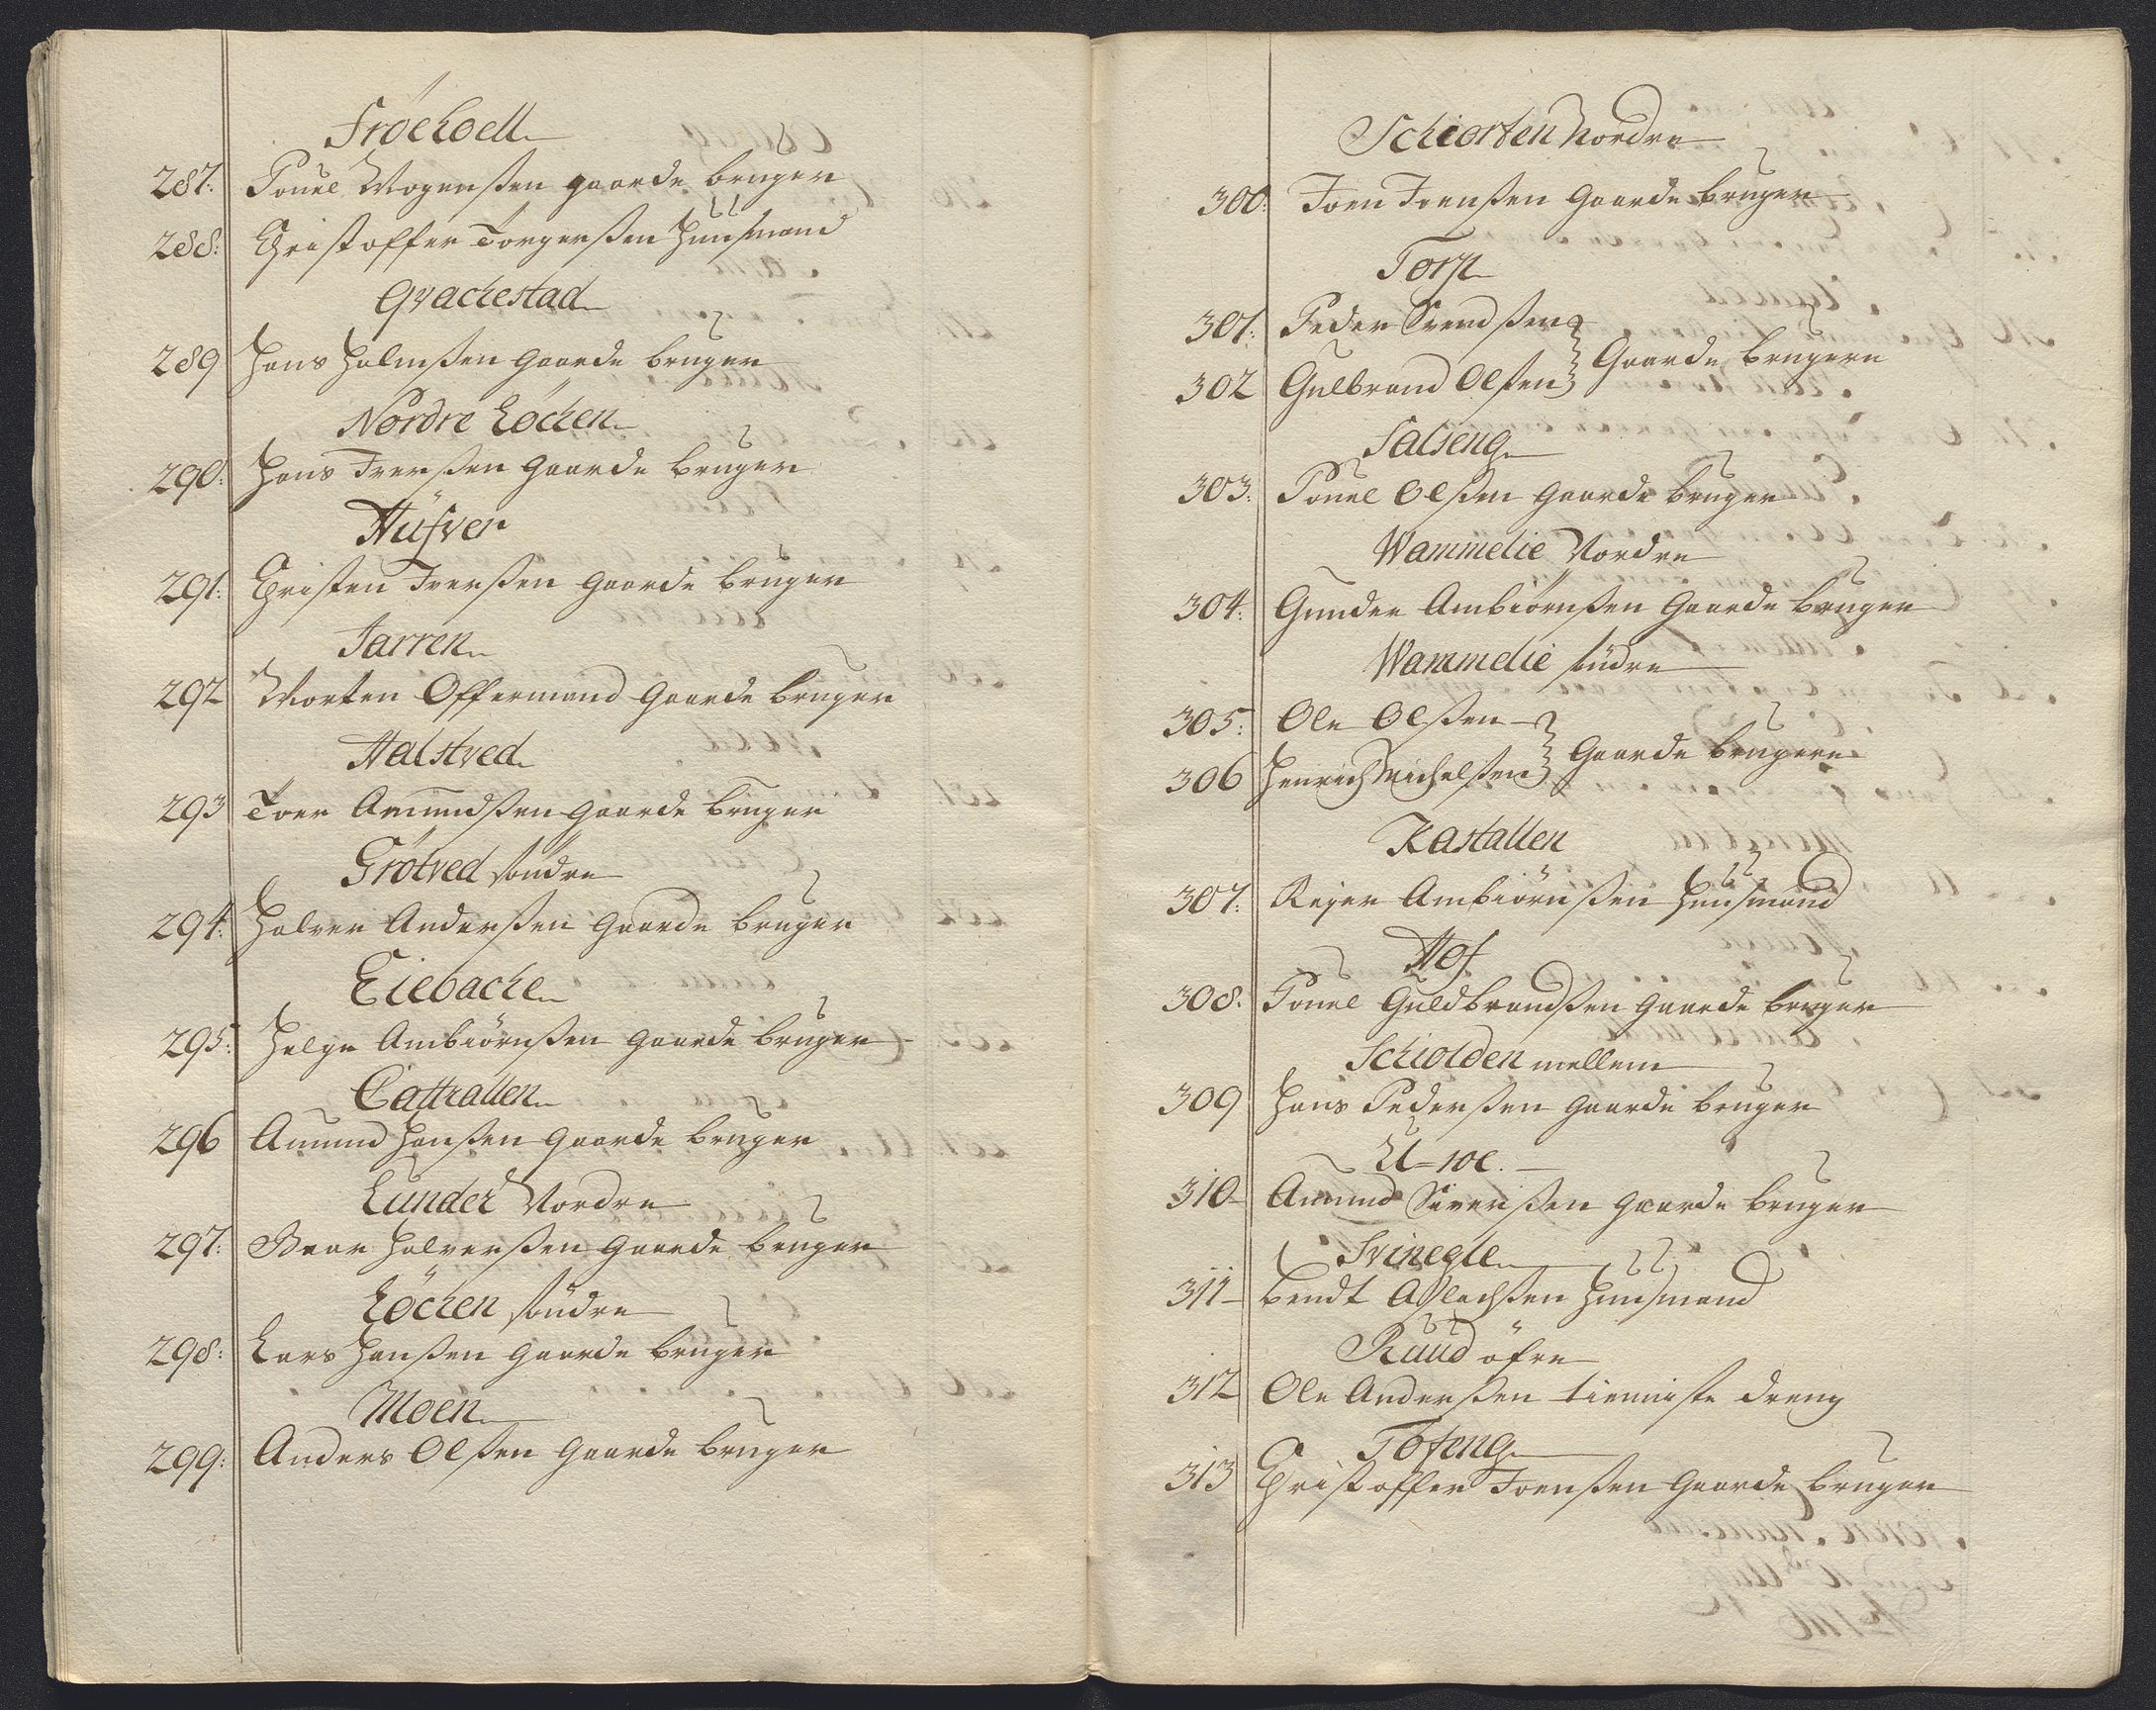 Fröehoell
287: Pouel Mogensßen gaarde bruger
288: Christoffer Torgersßen Huusmand
Qvackestad
289 Hans Holmsßen gaarde bruger
Nordre Löcken
290: Hans Iversßen gaarde bruger
Hüsver
291: Christen Iversßen gaarde bruger
Jarren
292 Morten Offermand gaarde bruger
Halstved
293 Toer Amundsßen gaarde bruger
Grötved söndre
294: Halver Andersßen gaarde bruger
Eiebacke
295: Helge Ambiörnsßen gaarde bruger
Cattrallen
296 Amund Hansßen gaarde bruger
Lunder Nordre
297: Baar Halversßen gaarde bruger
Löcken sündre
298: Lars Hansßen gaarde bruger
Moen
299: Anders Olsßen gaarde bruger
Schiorten Nordre
300: Joen Joensßen gaarde bruger
Torp
301: Peder Svendsßen
302 Gulbrand Olsen } Gaarde brugere
Salseng
303: Pouel Olsßen gaarde bruger
Wammelie Nordre
304: Gunder Ambiörnsßen gaarde bruger
Wammelie sündre
305: Ole Olsßen
306 Henrich Michelsßen } Gaarde brugere
Kastallen
307: Rejer Ambiörnsßen Huusmand
Hof
308: Pouel Guldbrandsßen gaarde bruger
Schiolden mellem
309 Hans Pedersßen gaarde bruger
U-roe.
310 Amund Siversßen gaarde bruger
Svinegle
311 bendt Aslachsßen Huusmand
Ruud öfre
312 Ole Andersßen tienniste dreng
Tofeng
313 Christoffer Joensßen gaarde bruger